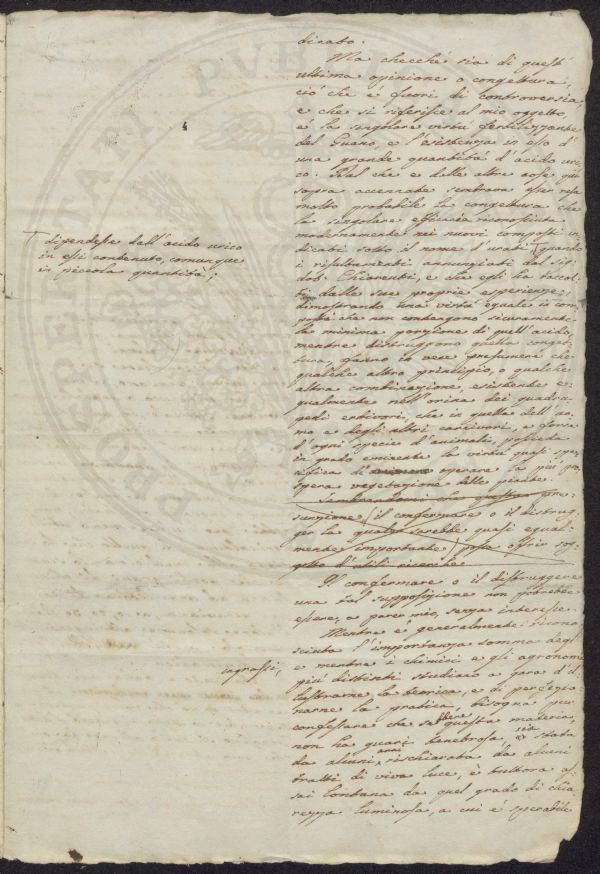 dicato.
Ma checchè sia di quest'
ultima opinione o congettura,
ciò che è fuori di controversia,
e che si riferisce al mio oggetto,
è la singolare virtù fertilizzante
del Guano, e l'esistenza in esso d'
una grande quantità d'acido uri-
co. Dal che e dalle altre cose qui
sopra accennate sembrava esser resa
molto probabile la congettura che
la singolare efficacia riconosciuta
modernamente nei nuovi composti in-
dicati sotto il nome d'urati quando
i resultamenti annunziati dal Sig.
Dot. Chiarenti, e che egli ha raccol-
ti dalle sue proprie esperienze,
dimostrando una virtù eguale in com-
posti che non contengono sicuramente
la minima porzione di quell'acido,
mentre distruggono quella conget-
tura, fanno in vece presumere che
qualche altro principio, o qualche
altra combinazione, esistente e-
gualmente nell'orina dei quadru-
pedi erbivori, che in quella dell'uo-
mo e degli altri carnivori, e forse
d'ogni specie d'animali, possieda
in grado eminente la virtù quasi spe-
cifica di operare la più pro-
spera vegetazione delle piante.
Sembrandomi che questa pre-
sunzione, il confermare o il distrug-
ger la quale sarebbe quasi egual-
mente importante, possa offrir sog-
getto d'utili ricerche
Il confermare o il distruggere
una tal supposizione non potrebbe
essere, a parer mio, senza interesse.
Mentre è generalmente ricono-
sciuta l'importanza somma degl'
e mentre i chimici e gli agronomi
più distinti studiano a gara d'il-
lustrarne la teorica, e di perfezio-
narne la pratica, bisogna pur
confessare che sebbene questa materia,
non ha guari tenebrosa, sia stata
da alcuni anni rischiarata da alcuni
tratti di viva luce, è tuttora as-
sai lontana da quel grado di chia-
rezza luminosa, a cui è sperabile
dipendesse dall'acido urico
in essi contenuto, comunque
in piccola quantità;
ingrassi,
PROSPERITATI PVBLI